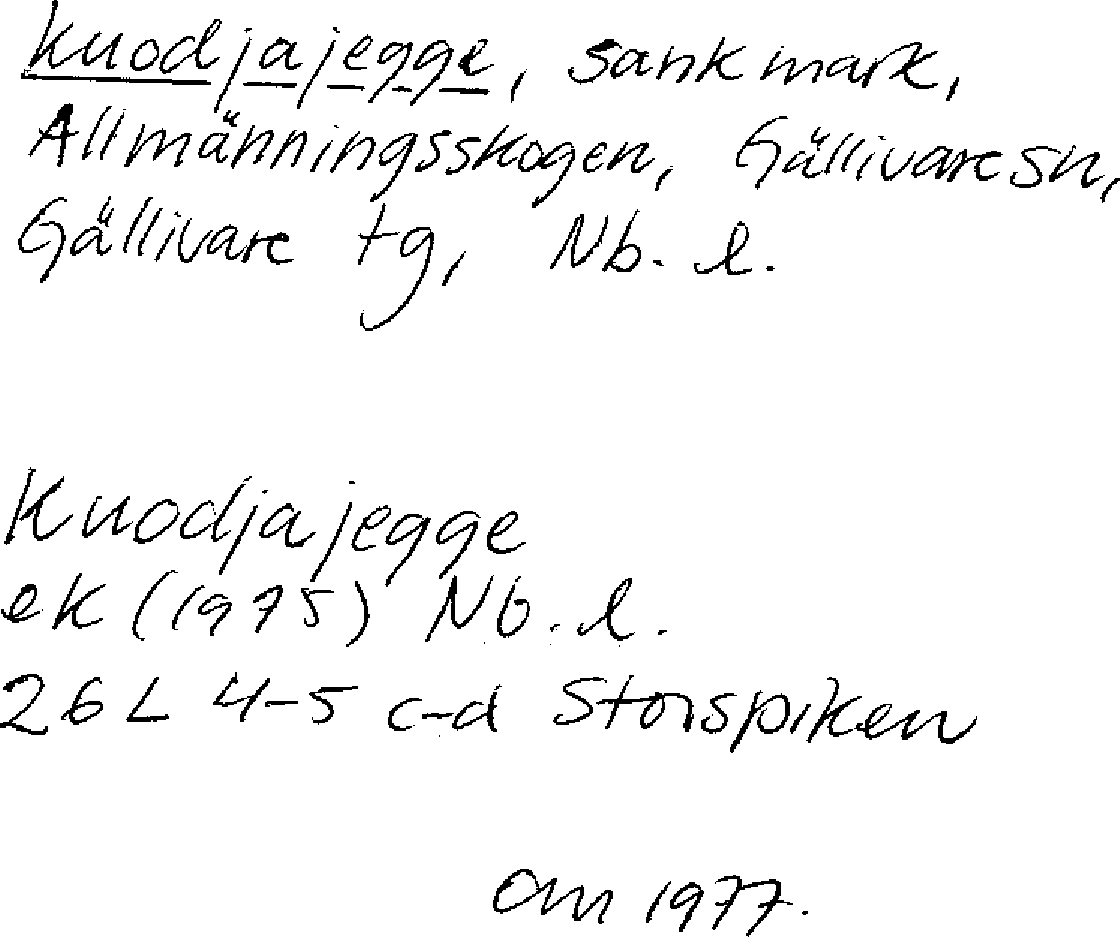 Kuodjajegge, sankmark,
Allmänningsskogen, Gällivare sn,
Gällivare tg, Nb. l.
Kuodjajegge
ek (1975) Nb. l.
26 L 4-5 c-d Storspiken
Om 1977.